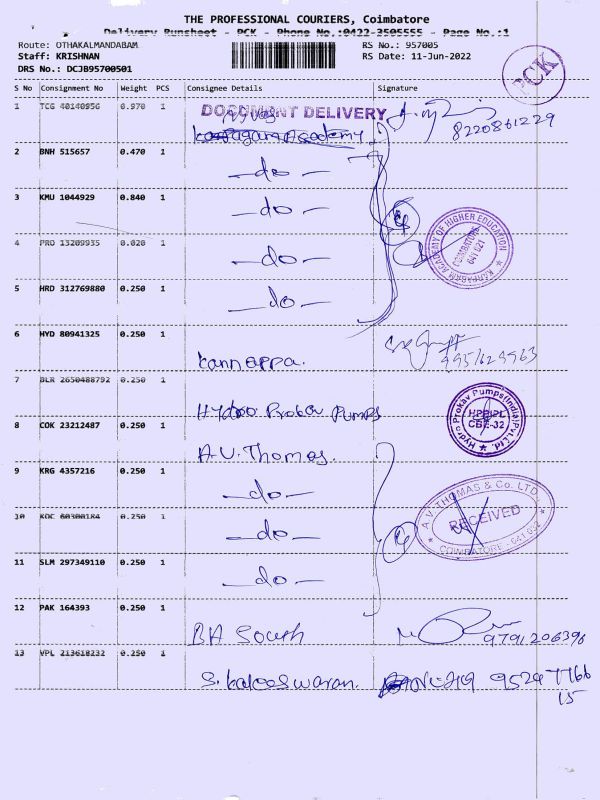 THE PROFESSIONAL COURIERS, Coimbatore
Delivery Runsheet - PCK - Phone No.:0422-3505555 - Page No.:1
Route: OTHAKALMANDABAM
RS No.: 957005
Staff: KRISHNAN
RS Date: 11-Jun-2022
DRS No.: DCJB95700501
PCK
S No Consignment No Weight PCS Consignee Details Signature
1 TCG 40140956 0.970 1 DOCUMENT DELIVERY
Karpagam Academy 8220861229
2 BNH 515657 0.470 1
-do-
3 KMU 1044929 0.840 1 -do-
KARPAGAM ACADEMY OF HIGHER EDUCATION
COIMBATORE
641 021
4 PRO 13209935 0.020 1
-do-
5 HRD 312769880 0.250 1
-do-
6 HYD 80941325 0.250 1
Kannappa.
7 BLR 2650488792 0.250 1
Hydro Prokav Pumps
Hydro Prokav Pumps (India) Pvt. Ltd.
HPPIPL
CBE-32
8 COK 23212487 0.250 1
A.V. Thomas.
9 KRG 4357216 0.250 1
-do-
A.V. THOMAS & Co. LTD.
RECEIVED
COIMBATORE - 641 032
10 KOC 60300184 0.250 1
-do-
11 SLM 297349110 0.250 1
-do-
12 PAK 164393 0.250 1
BA South 9791206396
13 VPL 213618232 0.250 1
S. Kaleeswaran. 95247766
15